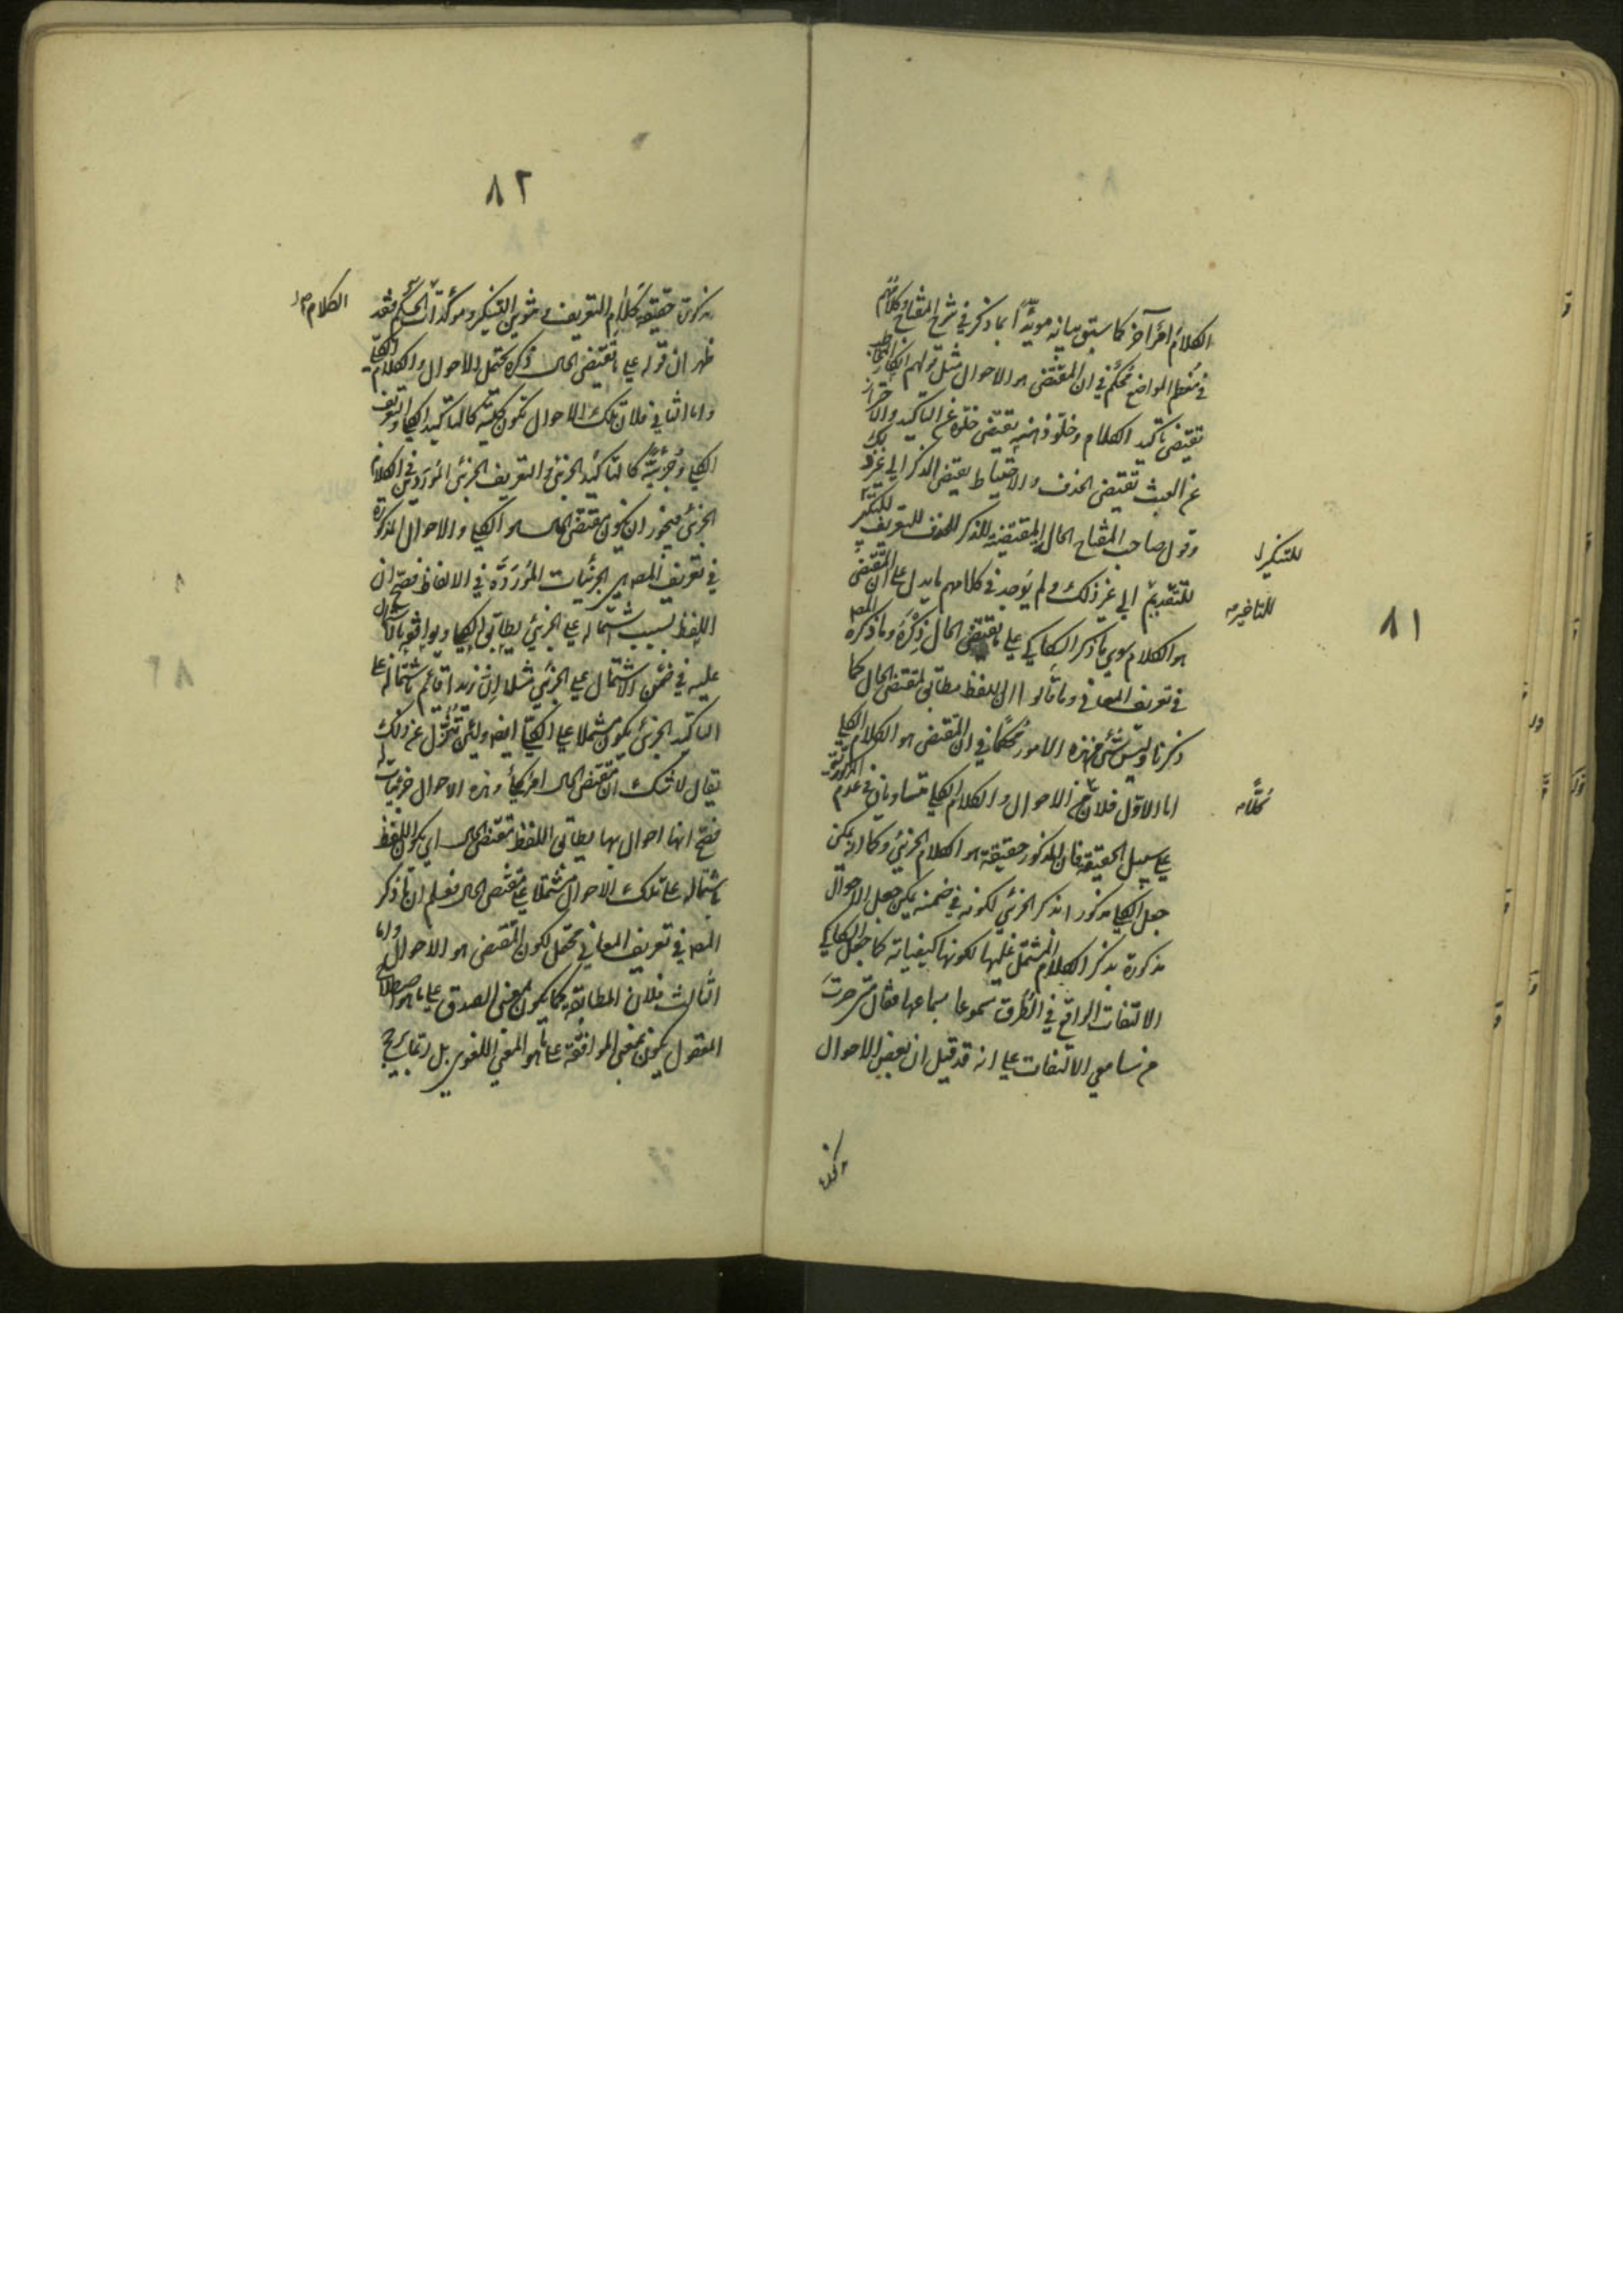 ٨١
الكلام امر آخر كما سبق بيانه مويّدًا بما ذكر في شرح المفتاح وكلامهم
في معظم المواضع محكم في ان المقتضى هو الاحوال مثل قولهم انكار المخاطب
تقتضى تاكيد الكلام وخلو ذهنه يقتضى خلوه عن التاكيد والاحتراز
عن العبث تقتضى الحذف والاحتياط يقتضى الذكر الى غير ذلك
وقول صاحب المفتاح الحالة المقتضية للذكر للحذف للتعريف للتنكير
للتنكير
للتقديم الى غير ذلك ولم يوجد في كلامهم ما يدل على ان المقتضى
للتاخير صح
هو الكلام سوى ما ذكر السكاكي على ما يقتضى الحال ذكره وما ذكره المص
في تعريف المعاني وما قالوا ان اللفظ مطابق لمقتضى الحال كما
ذكرنا وليس شئ من هذه الامور محكما في ان المقتضى هو الكلام الكلي
اما الاول فلان الاحوال والكلام الكلي متساويان في عدم المذكورية
على سبيل الحقيقة فان المذكور حقيقة هو الكلام الجزئي وكما انه يمكن
جعل الكلي مذكورا بذكر الجزئي لكونه في ضمنه يمكن جعل الاحوال
مذكورة بذكر الكلام المشتمل عليها لكونها كيفياته كما جعل السكاكي
الالتفات الواقع في الطرق مسموعا بسماعها فقال
من سامعي الالتفات على انه قد قيل ان بعض الاحوال
٨٢
مذكورة حقيقة كلام التعريف وتنوين التنكير وموكدات الحكم فقد
الكلام
ظهر ان قوله على ما يقتضى الحال ذكره يحتمل الاحوال والكلام الكلي
واما الثاني فلان تلك الاحوال تكون كلية كالتاكيد الكلي والتعريف
الكلي وجزئية كالتاكيد الجزئي والتعريف الجزئي الموردين في الكلام
الجزئي فيجوز ان يكون مقتضى الحال هو الكلي والاحوال المذكورة
في تعريف المص هي الجزئيات الموردة في الالفاظ فصح ان
اللفظ بسبب اشتماله على الجزئي يطابق الكلي ويوافقه بالاشتمال
عليه في ضمن الاشتمال على الجزئي مثلا ان زيدا قائم باشتماله على
التاكيد الجزئي يكون مشتملا على الكلي ايضا ولئن تنزل عن ذلك
يقال لا شك ان مقتضى الحال امر كلي وهذه الاحوال جزئيات له
فصح انها احوال بها يطابق اللفظ مقتضى الحال اي يكون اللفظ
باشتماله على تلك الاحوال مشتملا على مقتضى الحال فعلم ان ما ذكر
المص في تعريف المعاني محتمل لكون المقتضى هو الاحوال واما
الثالث فلان المطابقة كما يكون بمعنى الصدق على ما هو اصطلاح
المعقول يكون بمعنى الموافقة على ما هو المعنى اللغوي بل